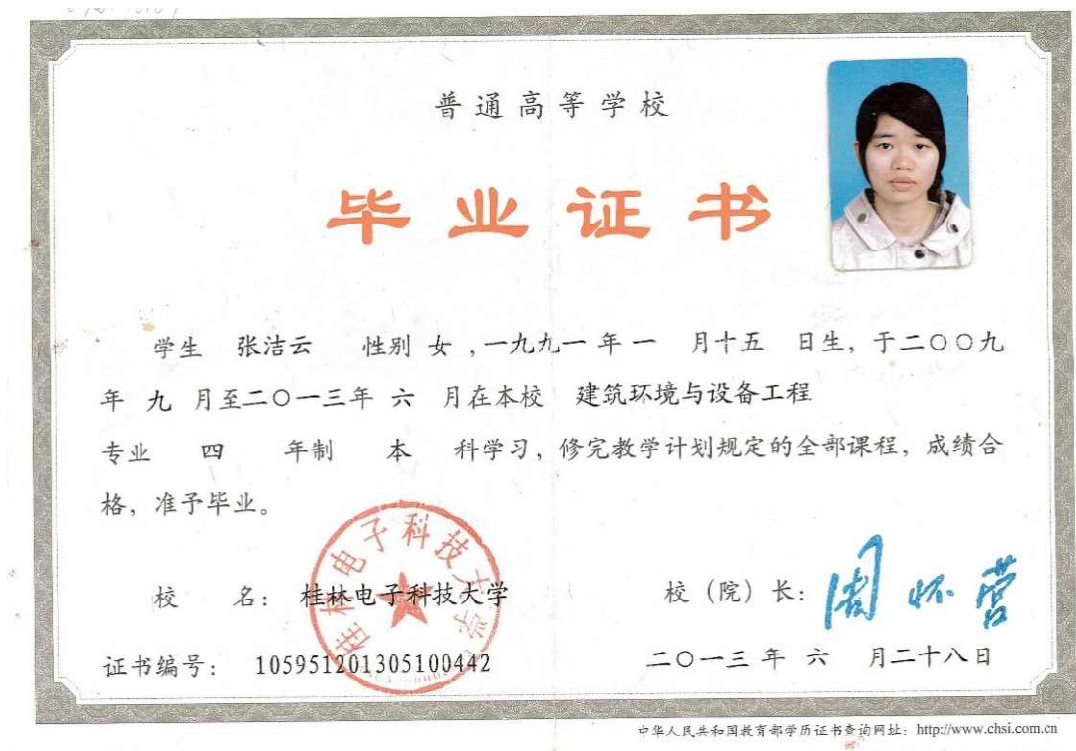 普通高等学校
毕业证书
学生 张洁云 性别 女 ,一九九一 年 一 月十五 日生, 于二〇〇九
年 九 月至二〇一三年 六 月在本校 建筑环境与设备工程
专业 四 年制 本 科学习, 修完教学计划规定的全部课程, 成绩合
格, 准予毕业。
桂林电子科技大学
校 名: 桂林电子科技大学
校 (院) 长: 周怀营
证书编号: 105951201305100442
二〇一三 年 六 月二十八日
中华人民共和国教育部学历证书查询网址: http://www.chsi.com.cn